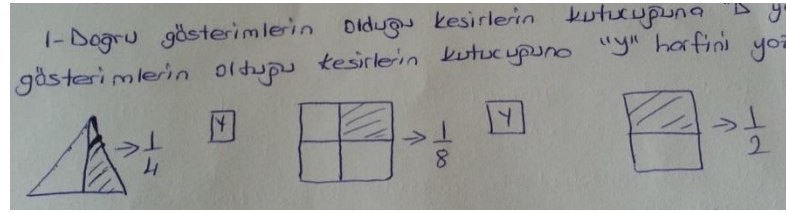 1-Doğru gösterimlerin olduğu kesirlerin kutucuğuna "D y
gösterimlerin olduğu kesirlerin kutucuğuna "y" harfini yaz
→ 1/4 Y → 1/8 Y → 1/2